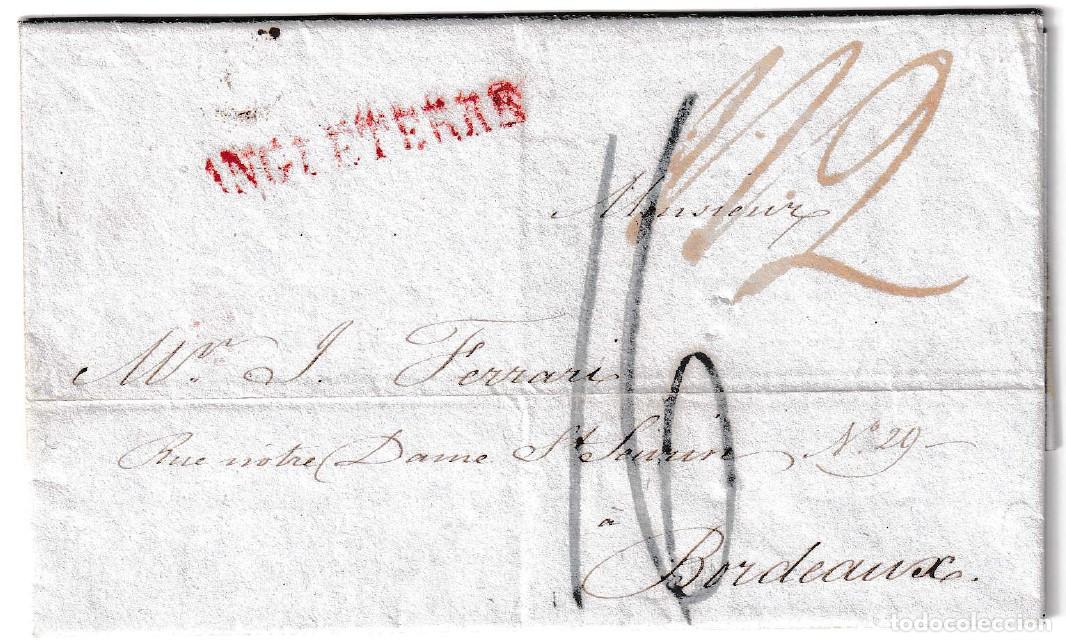 ANGLETERRE
Monsieur
Mr. J. Ferrari
Rue notre Dame St Seurin No. 29
à
Bordeaux.
16
todocoleccion